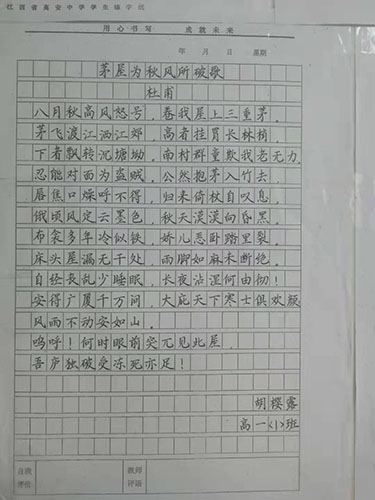 江西省高安中学学生练字纸
用心书写 成就未来
年 月 日 星期
茅屋为秋风所破歌
杜甫
八月秋高风怒号，卷我屋上三重茅。
茅飞渡江洒江郊，高者挂罥长林梢，
下者飘转沉塘坳。南村群童欺我老无力，
忍能对面为盗贼，公然抱茅入竹去，
唇焦口燥呼不得，归来倚杖自叹息。
俄顷风定云墨色，秋天漠漠向昏黑。
布衾多年冷似铁，娇儿恶卧踏里裂。
床头屋漏无干处，雨脚如麻未断绝。
自经丧乱少睡眠，长夜沾湿何由彻！
安得广厦千万间，大庇天下寒士俱欢颜
风雨不动安如山。
呜呼！何时眼前突兀见此屋，
吾庐独破受冻死亦足！
胡樱露
高一〈1〉班
自我评价
教师评语